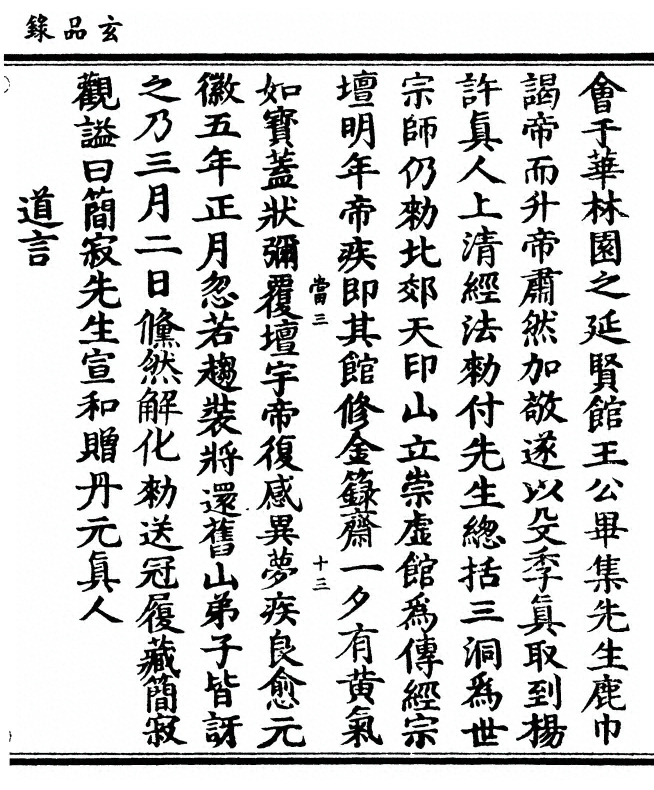 玄品錄
會于華林園之延賢館王公畢集先生鹿巾
謁帝而升帝肅然加敬遂以殳季真取到楊
許真人上清經法勑付先生總括三洞爲世
宗師仍勑北郊天印山立崇虛館爲傳經宗
壇明年帝疾即其館修金籙齋一夕有黄氣
當三
十三
如寶蓋狀彌覆壇宇帝復感異夢疾良愈元
徽五年正月忽若趨裝將還舊山弟子皆訝
之乃三月二日儵然解化勑送冠履藏簡寂
觀謚曰簡寂先生宣和贈丹元真人
道言